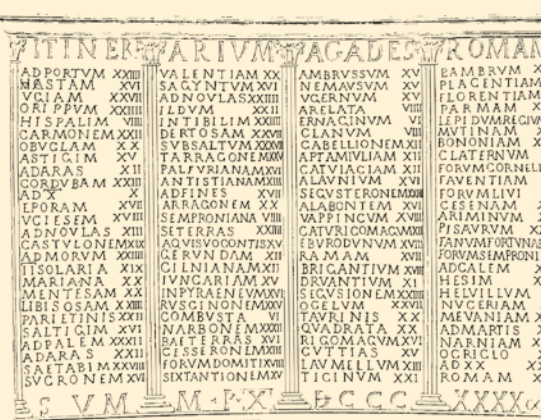 ITINERARIVM A GADES ROMAM
AD PORTVM XXIIII
HASTAM XVI
VGIAM XXVII
ORIPPVM XXIIII
HISPALIM VIIII
CARMONEM XXII
OBVCLAM XX
ASTIGIM XV
AD ARAS XII
CORDVBAM XXIII
AD X X
EPORAM XVII
VCIESEM XVIII
AD NOVLAS XIII
CASTVLONEM XIX
AD MORVM XXIIII
II SOLARIA XIX
MARIANA XX
MENTESAM XX
LIBISOSAM XXIIII
PARIETINIS XXII
SALTIGIM XVI
AD PALEM XXXII
AD ARAS XXII
SAETABIM XXVIII
SVCRONEM XVI
VALENTIAM XX
SAGYNTVM XVI
AD NOVLAS XXIIII
ILDVM XXII
INTIBILIM XXIIII
DERTOSAM XXVII
SVBSALTVM XXXVII
TARRACONEM XXV
PALFVRIANA XVI
ANTISTIANAM XIII
AD FINES XVII
ARRAGONEM XX
SEMPRONIANA VIIII
SETERRAS XXIIII
AQVIS VOCONTIS XV
GERVNDAM XII
CILNIANAM XII
IVNCARIAM XV
IN PYRAENEVM XVI
RVSCINONEM XXV
COMBVSTA VI
NARBONEM XXXII
BAETERRAS XVI
CESSERONEM XII
FORVM DOMITI XVIII
SEXTANTIONEM XV
AMBRVSSVM XV
NEMAVSVM XV
VGERNVM XV
ARELATA VIII
ERNAGINVM VI
CLANVM VIII
CABELLIONEM XII
APTAMIVLIAM XII
CATVIACIAM XII
ALAVNIVM XVI
SEGVSTERONEM XXIIII
ALABONTEM XVI
VAPPINCVM XVIII
CATVRIGOMAG XII
EBVRODVNVM XVIII
RAMAM XVII
BRIGANTIVM XVIII
DRVANTIVM XI
SEGVSIONEM XXIIII
OGELVM XXVII
TAVRINIS XX
QVADRATA XX
RIGOMAGVM XVI
CVTTIAS XV
LAVMELLVM XIII
TICINVM XXI
LAMBRVM XX
PLACENTIAM
FLORENTIAM
PARMAM X
LEPIDVM REGIVM
MVTINAM X
BONONIAM X
CLATERNVM
FORVM CORNELI
FAVENTIAM
FORVM LIVI
CESENAM X
ARIMINVM X
PISAVRVM XX
FANVM FORTVNAE
FORVM SEMPRONI
AD CALEM X
HESIM X
HELVILLVM
NVCERIAM X
MEVANIAM X
AD MARTIS X
NARNIAM X
OCRICLO X
AD XX XX
ROMAM X
SVM M·P·XI DCCC XXXX